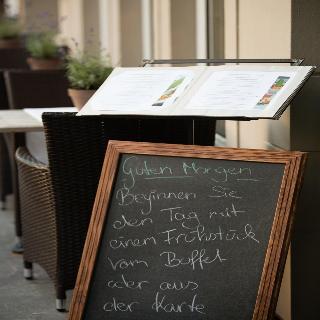 Guten Morgen
Beginnen Sie
den Tag mit
einem Frühstück
vom Buffet
oder aus
der Karte